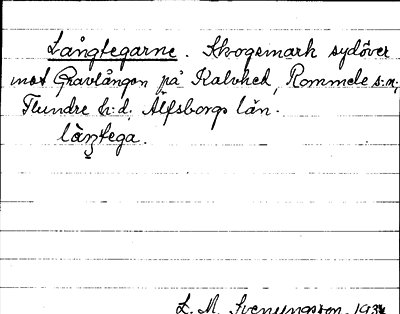 Långtegarne. Skogsmark sydöver
mot Gravlången på Kalvhed, Rommele s:n,
Flundre h:d, Älfsborgs län.
làŋtega.
L. M. Svenungsson, 193